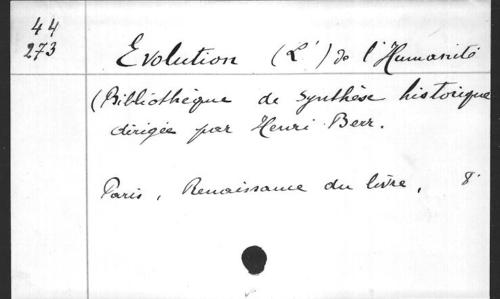 44
273
Evolution (L') de l'Humanité
(Bibliothèque de synthèse historique
dirigée par Henri Berr.
Paris, Renaissance du livre, 8°